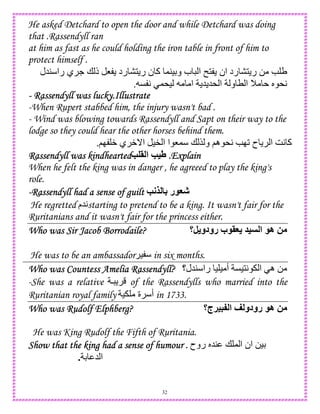 He asked Detchard to open the door and while Detchard was doing
that .Rassendyll ran
at him as fast as he could holding the iron table in front of him to
protect himself .
طلب من ريتشارد ان يفتح الباب وبينما كان ريتشارد يفعل ذلك جري راسندل
نحوه حاملا الطاولة الحديدية امامه ليحمي نفسه.
- Rassendyll was lucky.Illustrate
-When Rupert stabbed him, the injury wasn't bad .
- Wind was blowing towards Rassendyll and Sapt on their way to the
lodge so they could hear the other horses behind them.
كانت الرياح تهب نحوهم ولذلك سمعوا الخيل الاخري خلفهم.
Rassendyll was kindhearted طيب القلب .Explain
When he felt the king was in danger , he agreeed to play the king's
role.
-Rassendyll had a sense of guilt شعور بالذنب
He regretted ندم starting to pretend to be a king. It wasn't fair for the
Ruritanians and it wasn't fair for the princess either.
Who was Sir Jacob Borrodaile? من هو السيد يعقوب رودويل؟
He was to be an ambassador سفير in six months.
Who was Countess Amelia Rassendyll? من هي الكونتيسة أميليا راسندل؟
-She was a relative قريبة of the Rassendylls who married into the
Ruritanian royal family أسرة ملكية in 1733.
Who was Rudolf Elphberg? من هو رودولف الفبيرج؟
He was King Rudolf the Fifth of Ruritania.
Show that the king had a sense of humour . بين ان الملك عنده روح
الدعابة.
32